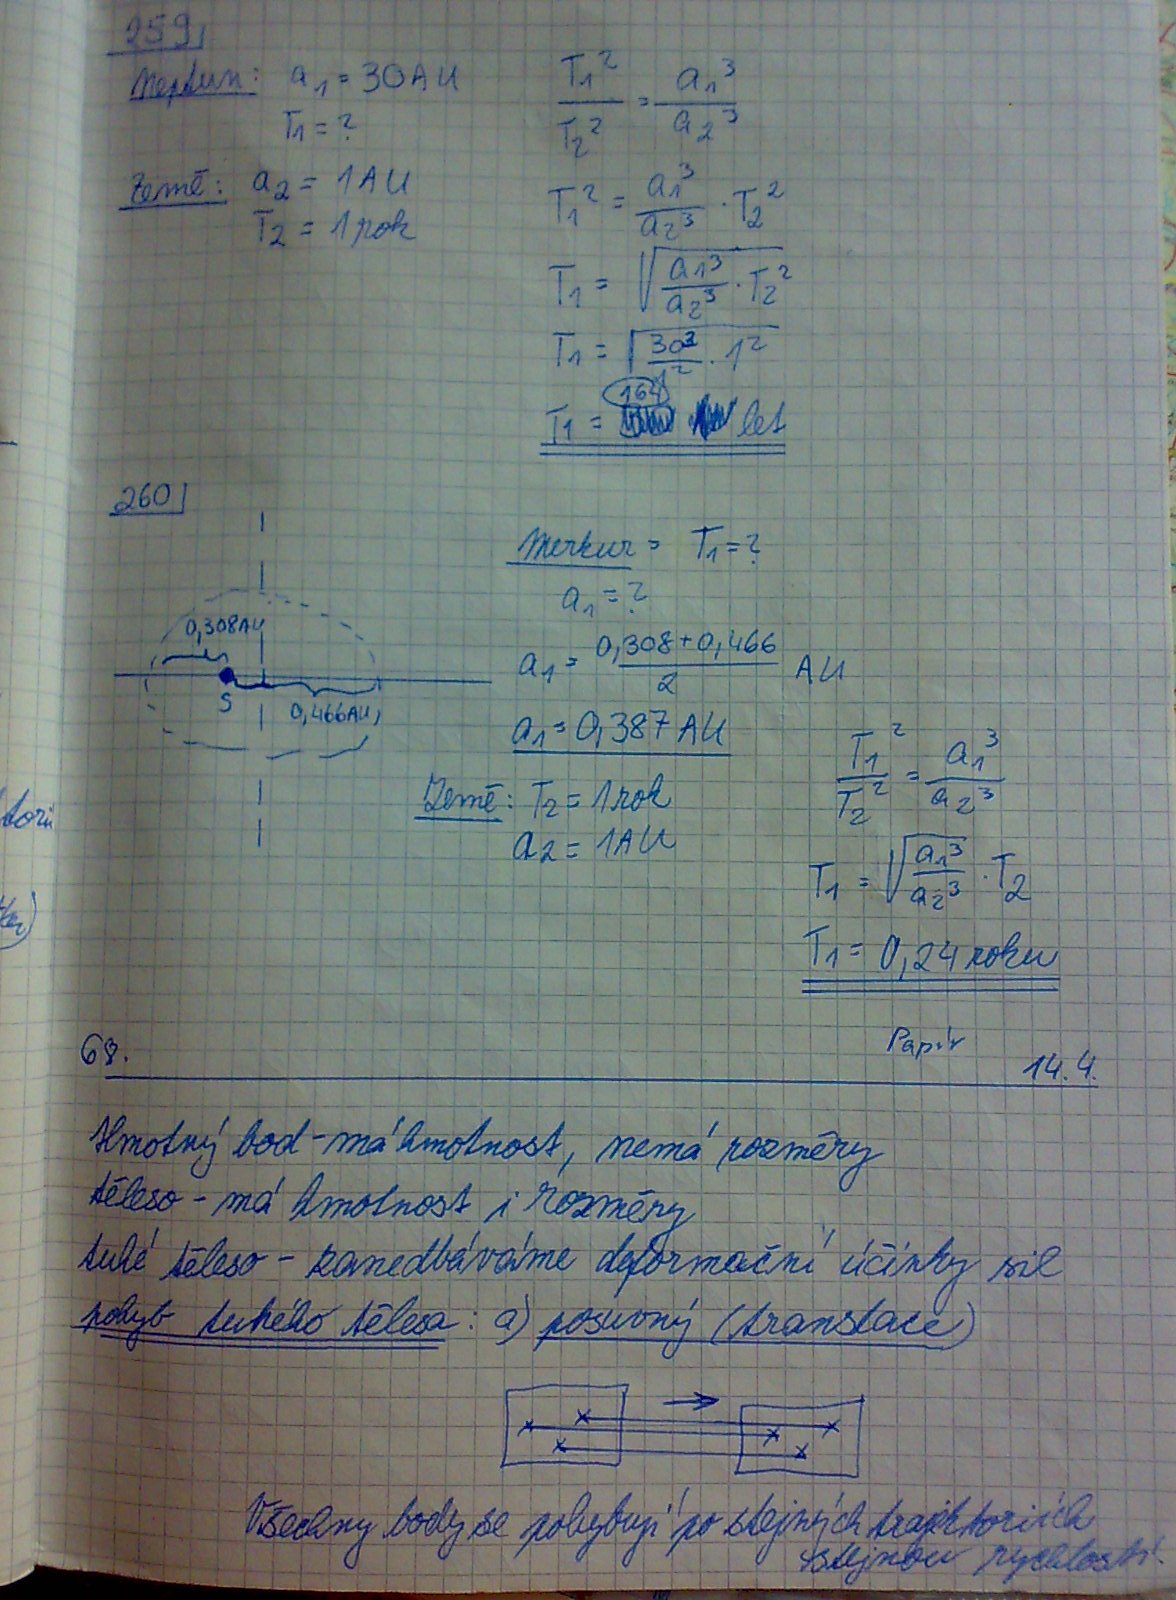 259)
Neptun: a₁ = 30AU
T₁ = ?
Země: a₂ = 1AU
T₂ = 1 rok
T₁²/T₂² = a₁³/a₂³
T₁² = a₁³/a₂³ · T₂²
T₁ = √(a₁³/a₂³ · T₂²)
T₁ = √(30³/1² · 1²)
T₁ = 164 let
260)
0,308AU
S
0,466AU
Merkur = T₁ = ?
a₁ = ?
a₁ = (0,308+0,466)/2 AU
a₁ = 0,387 AU
Země: T₂ = 1 rok
a₂ = 1AU
T₁²/T₂² = a₁³/a₂³
T₁ = √(a₁³/a₂³) · T₂
T₁ = 0,24 roku
68. Papír 14.4.
Hmotný bod - má hmotnost, nemá rozměry
těleso - má hmotnost i rozměry
tuhé těleso - zanedbáváme deformační účinky sil
pohyb tuhého tělesa: a) posuvný (translace)
Všechny body se pohybují po stejných trajektoriích
stejnou rychlostí